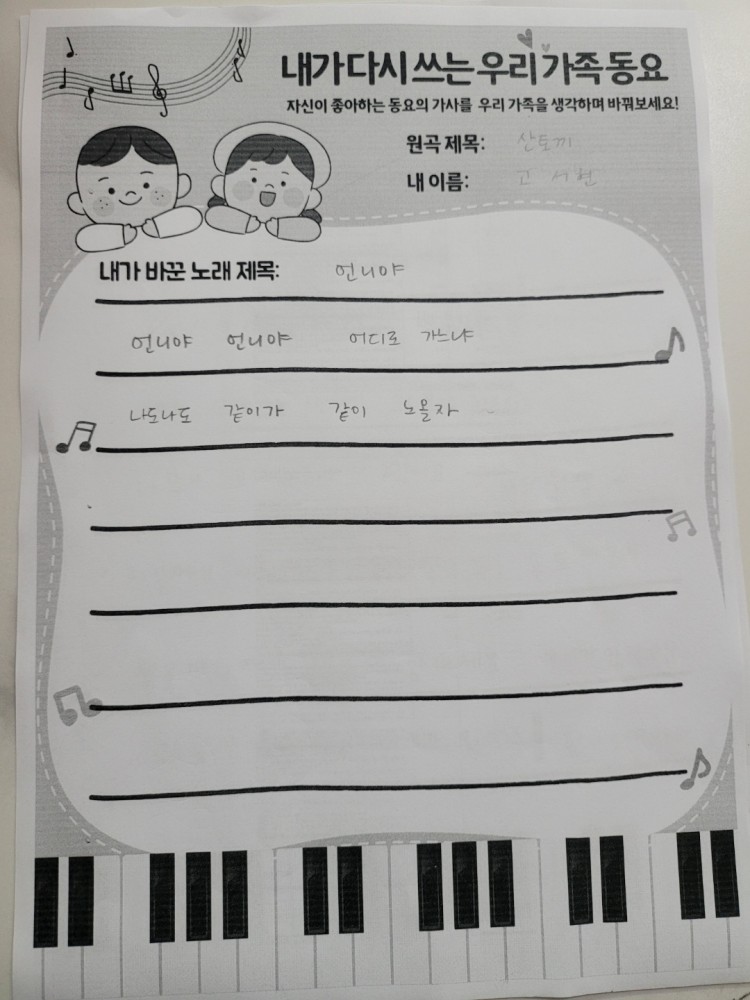 내가 다시 쓰는 우리 가족 동요
자신이 좋아하는 동요의 가사를 우리 가족을 생각하며 바꿔보세요!
원곡 제목: 산토끼
내 이름: 고 서현
내가 바꾼 노래 제목: 언니야
언니야 언니야 어디로 가느냐
나도나도 같이가 같이 노올자